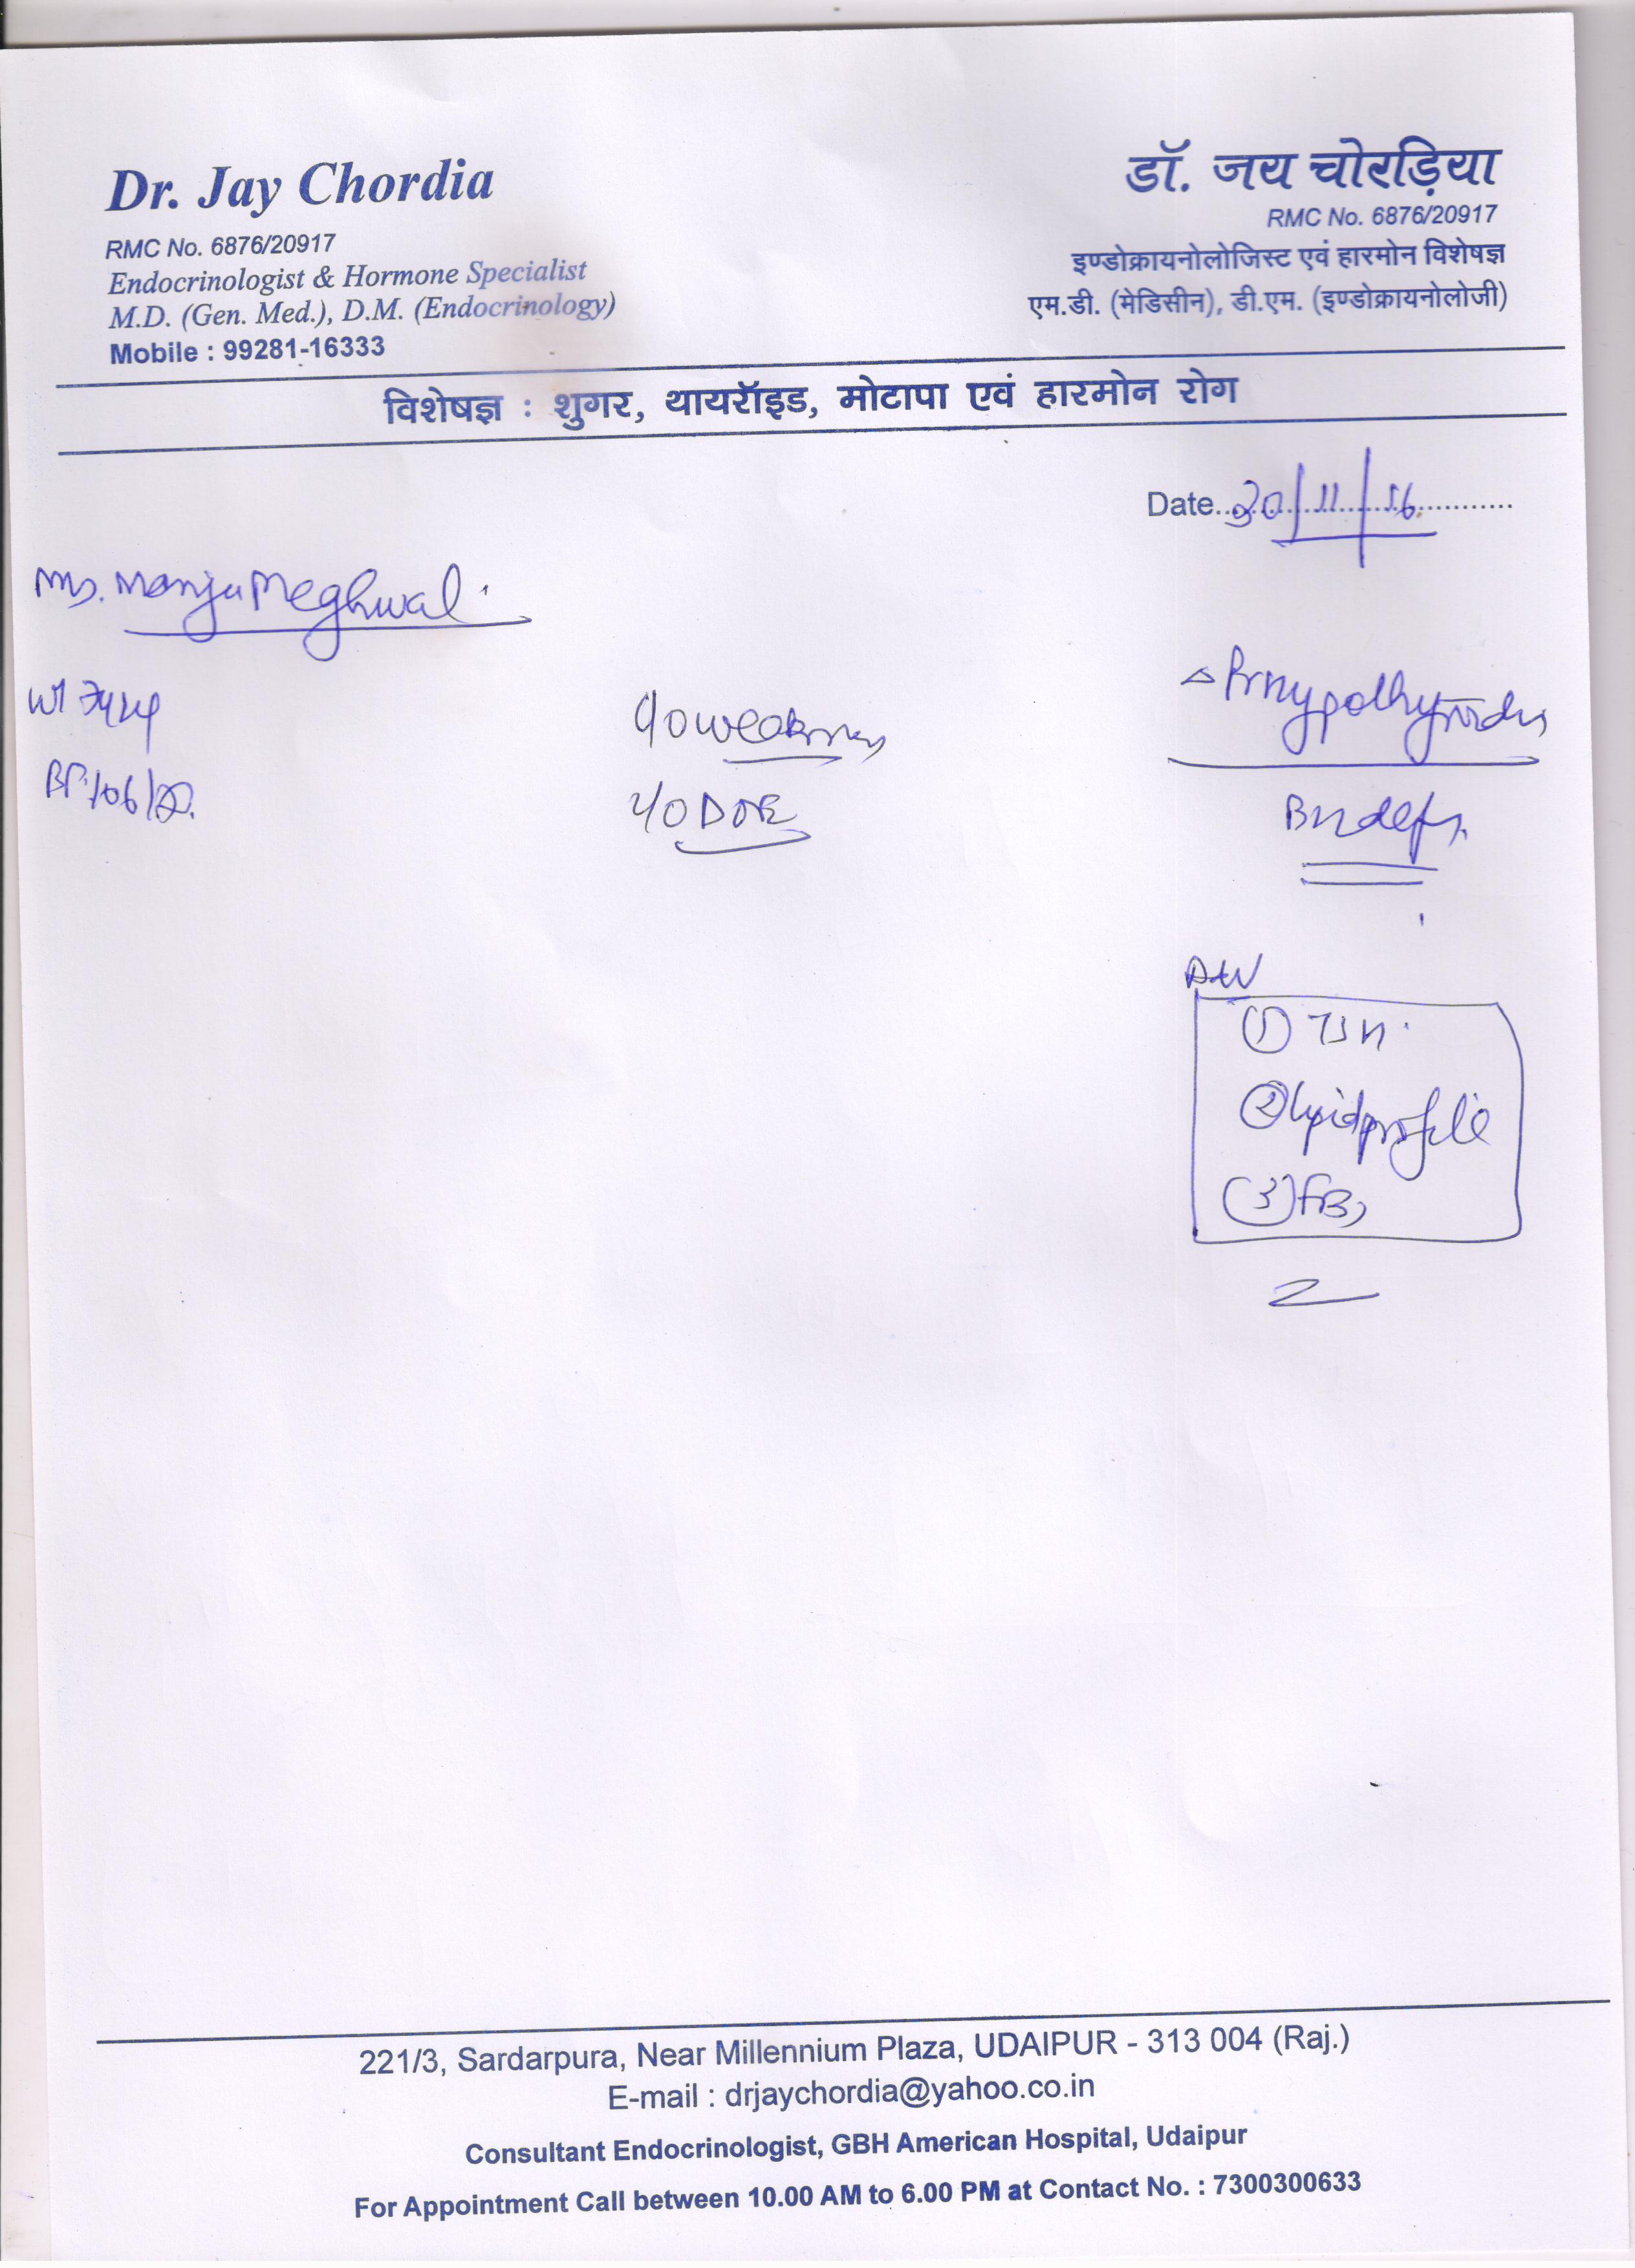 Dr. Jay Chordia
RMC No. 6876/20917
Endocrinologist & Hormone Specialist
M.D. (Gen. Med.), D.M. (Endocrinology)
Mobile : 99281-16333
डॉ. जय चोरड़िया
RMC No. 6876/20917
इण्डोक्रायनोलोजिस्ट एवं हारमोन विशेषज्ञ
एम.डी. (मेडिसीन), डी.एम. (इण्डोक्रायनोलोजी)
विशेषज्ञ : शुगर, थायरॉइड, मोटापा एवं हारमोन रोग
Date..30/11/16
Ms. Manju Meghwal
Wt
BP
c/o weakness
c/o DOE
① TSH
② lipid profile
③ FBS
221/3, Sardarpura, Near Millennium Plaza, UDAIPUR - 313 004 (Raj.)
E-mail : drjaychordia@yahoo.co.in
Consultant Endocrinologist, GBH American Hospital, Udaipur
For Appointment Call between 10.00 AM to 6.00 PM at Contact No. : 7300300633